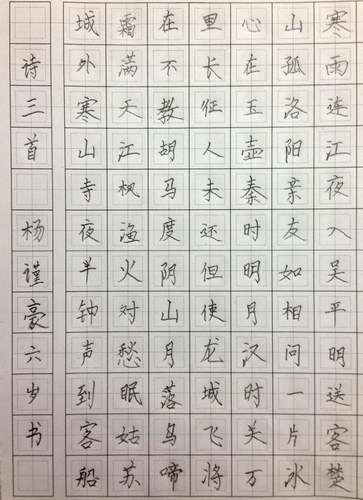 寒雨连江夜入吴平明送客楚
山孤洛阳亲友如相问一片冰
心在玉壶秦时明月汉时关万
里长征人未还但使龙城飞将
在不教胡马度阴山月落乌啼
霜满天江枫渔火对愁眠姑苏
城外寒山寺夜半钟声到客船
诗三首 杨谨豪六岁书